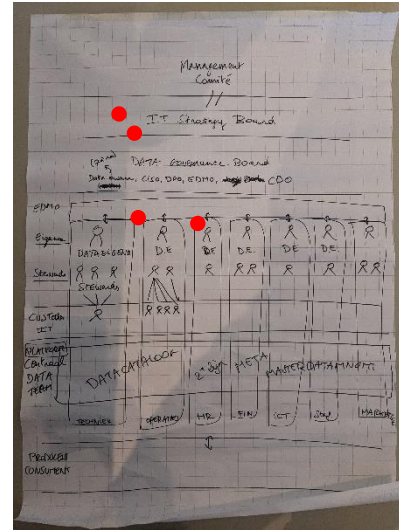 Management
Comité
//
IT Strategy Board
DATA GOVERNANCE Board
Data, CISO, DPO, EDMO, CDO
EDMO
DATA EIGENR D.E DE D.E. DE D.E.
Stewards
STEWARDS
CUSTODIAN
ICT
PLATFORM
Centraal
DATA
TEAM
DATACATALOOG META MASTERDATAMNGMT
TECHNIEK OPERATIES HR FIN ICT MARKETING
PRODUCER
CONSUMENT